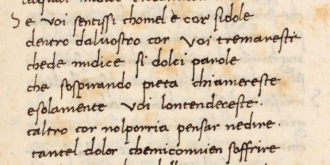 Se voi sentissi chomel e cor si dole
dentro dal vostro cor voi tremaresti
chede midice si dolci parole
che sospirando pieta chiamereste
esolamente voi lontendeceste.
caltro cor nolporria pensar nedire.
tantel dolor chemiconvien soffrire